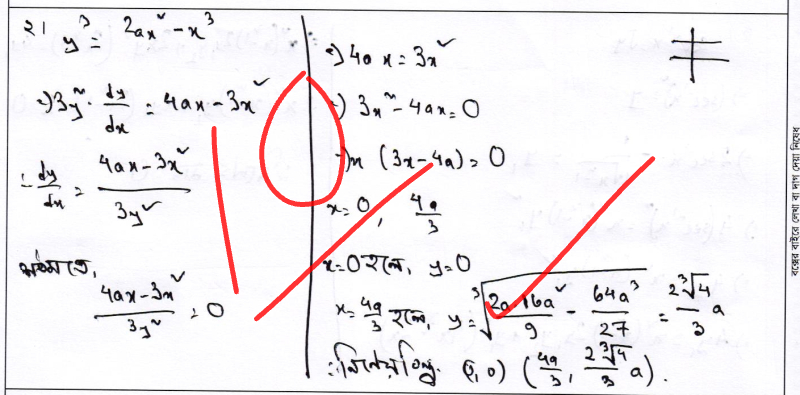 ২। y³ = 2ax² - x³
⇒ 3y² · dy/dx = 4ax - 3x²
∴ dy/dx = (4ax - 3x²)/(3y²)
প্রশ্নমতে,
(4ax - 3x²)/(3y²) = 0
⇒ 4ax = 3x²
⇒ 3x² - 4ax = 0
⇒ x (3x - 4a) = 0
x = 0, 4a/3
x = 0 হলে, y = 0
x = 4a/3 হলে, y = ∛(2a·16a²/9 - 64a³/27) = (2∛4/3) a
∴ নির্ণেয় বিন্দু (0, 0) (4a/3, (2∛4/3) a).
বক্সের বাইরে লেখা বা দাগ দেয়া নিষেধ